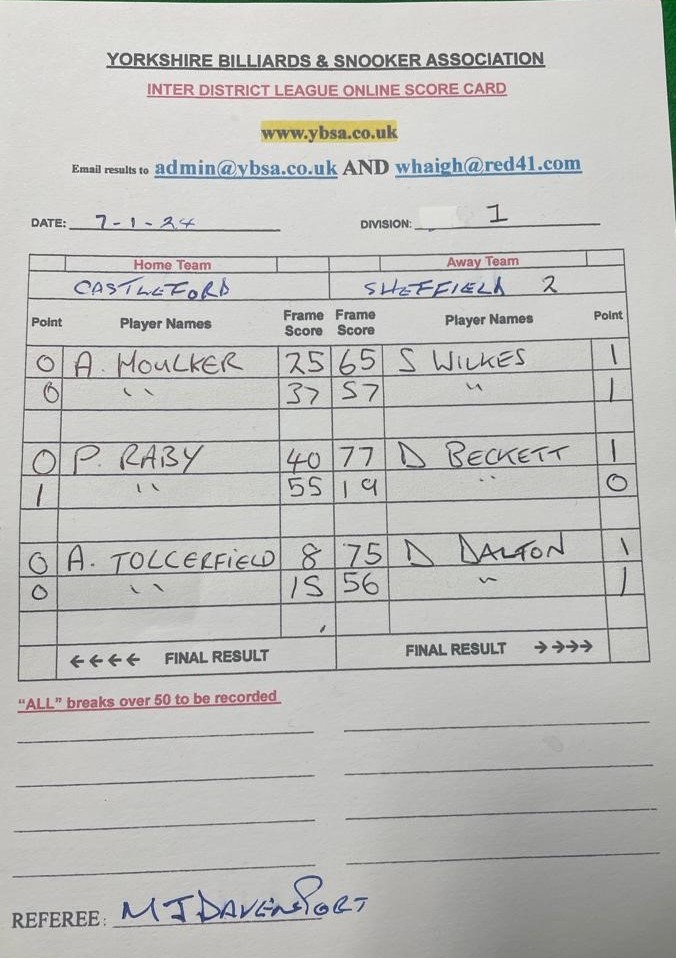 YORKSHIRE BILLIARDS & SNOOKER ASSOCIATION
INTER DISTRICT LEAGUE ONLINE SCORE CARD
www.ybsa.co.uk
Email results to admin@ybsa.co.uk AND whaigh@red41.com
DATE: 7-1-24 DIVISION: 1
Home Team Away Team
CASTLEFORD SHEFFIELD 2
Point Player Names Frame Score Frame Score Player Names Point
0 A. MOULKER 25 65 S WILKES 1
0 '' 37 57 '' 1
0 P. RABY 40 77 D BECKETT 1
1 '' 55 19 '' 0
0 A. TOLLERFIELD 8 75 D DALTON 1
0 '' 15 56 '' 1
←←←← FINAL RESULT FINAL RESULT →→→→
“ALL” breaks over 50 to be recorded
REFEREE: M J DAVENPORT